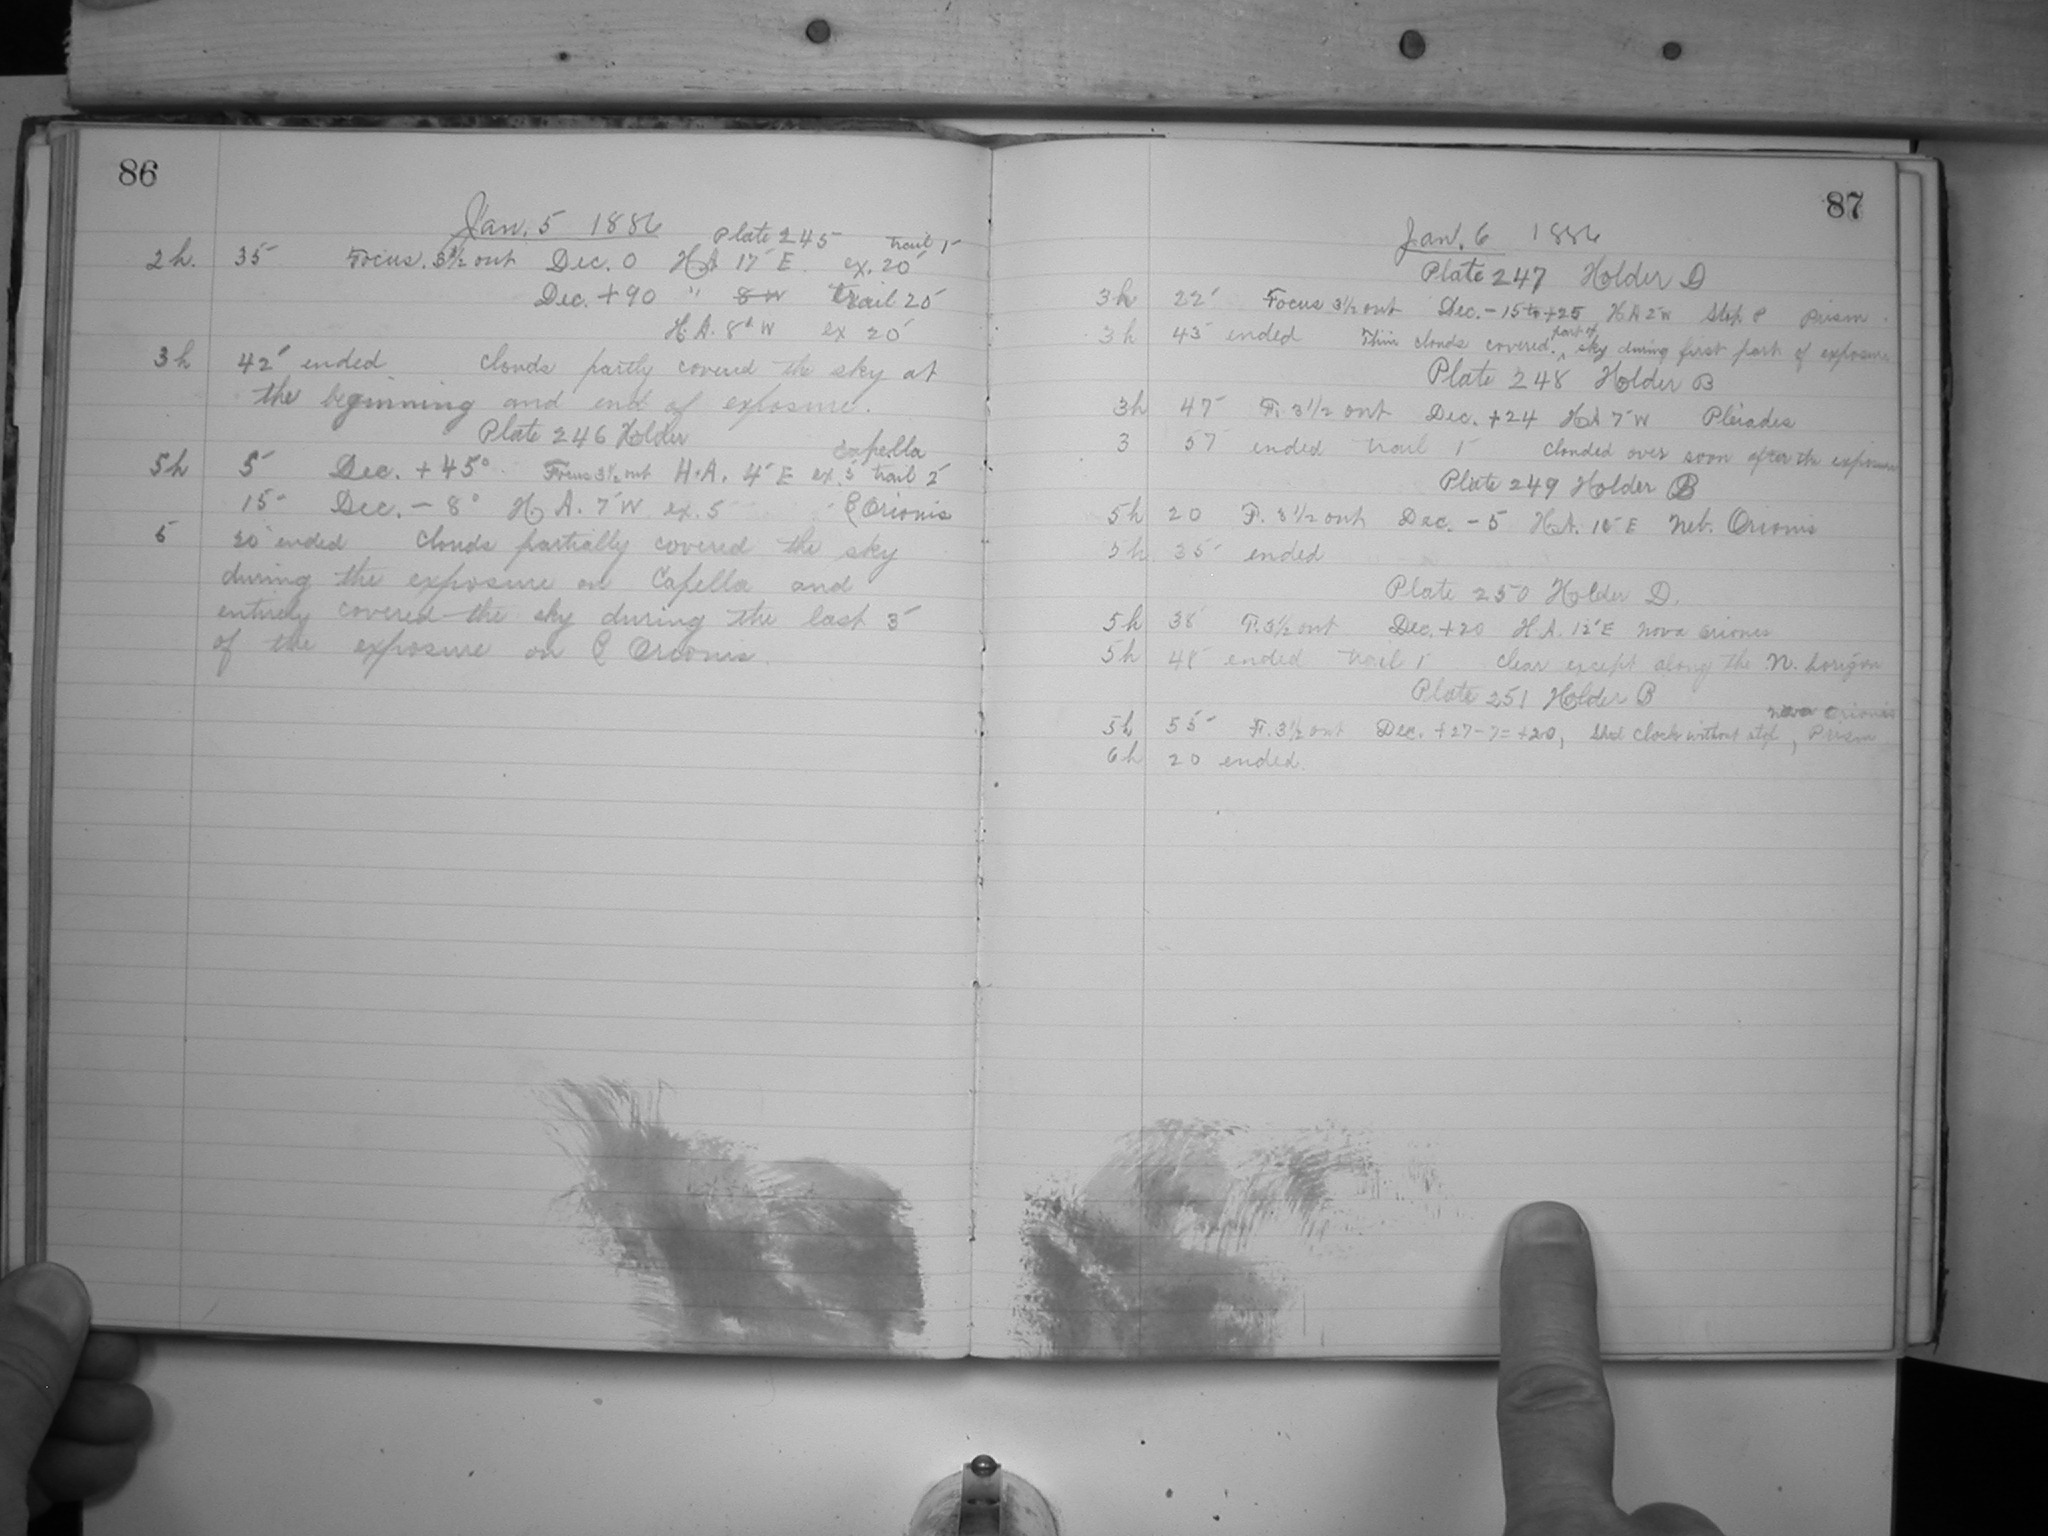 86
Jan. 5 1886
Plate 245 trail 1'
2h. 35' Focus. 3½ out Dec. 0 H.A 17' E. ex. 20'
Dec. +90 " 8 W trail 20'
H.A. 8h W ex 20'
3h 42' ended Clouds partly covered the sky at
the beginning and end of exposure.
Plate 246 Holder
Capella
5h 5' Dec. +45° Focus 3½ out H.A. 4' E ex. 5' trail 2'
15' Dec. -8° H. A. 7' W ex. 5 Orionis
5 20' ended Clouds partially covered the sky
during the exposure on Capella and
entirely covered the sky during the last 3'
of the exposure on Orionis.
87
Jan. 6 1886
Plate 247 Holder D
3h 22' Focus 3½ out Dec. -15 to +25 H A 2' W Stop. P Prism.
3h 43' ended Thin clouds covered part of sky during first part of exposure
Plate 248 Holder B
3h 47' F. 3½ out Dec. +24 HA 7' W Pleiades
3 57 ended trail 1' Clouded over soon after the exposure
Plate 249 Holder B
5h 20 F. 3½ out Dec. -5 H.A. E Neb. Orionis
5h 35' ended
Plate 250 Holder D.
5h 38' F. 3½ out Dec. +20 H.A. 12' E nova orionis
5h 48' ended trail 1' Clear except along the N. horizon
Plate 251 Holder B
nova orionis
5h 55' F. 3½ out Dec. +27-7=+20, Clock without stop, Prism
6h 20 ended.